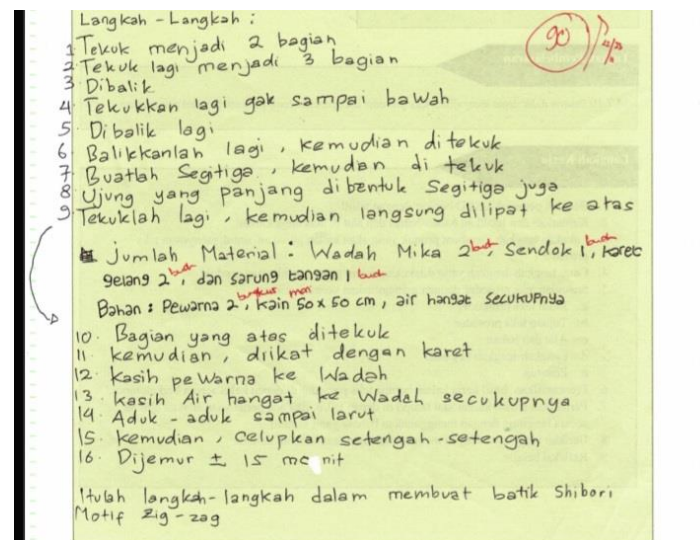 Langkah - Langkah :
90
1 Tekuk menjadi 2 bagian
2 Tekuk lagi menjadi 3 bagian
3 Dibalik
4 Tekukkan lagi gak sampai bawah
5 Dibalik lagi
6 Balikkanlah lagi, kemudian ditekuk
7 Buatlah Segitiga, kemudan di tekuk
8 Ujung yang panjang dibentuk Segitiga juga
9 Tekuklah lagi, kemudian langsung dilipat ke atas
Jumlah Material : Wadah Mika 2 buah, Sendok 1 buah, karet
gelang 2 buah, dan sarung tangan 1 buah
Bahan : Pewarna 2 bungkus, kain mori 50 x 50 cm, air hangat secukupnya
10. Bagian yang atas ditekuk
11. kemudian, diikat dengan karet
12. kasih pewarna ke Wadah
13. kasih Air hangat ke Wadah secukupnya
14. Aduk - aduk sampai larut
15. kemudian, celupkan setengah-setengah
16. Dijemur ± 15 menit
Itulah langkah-langkah dalam membuat batik Shibori
Motif zig-zag